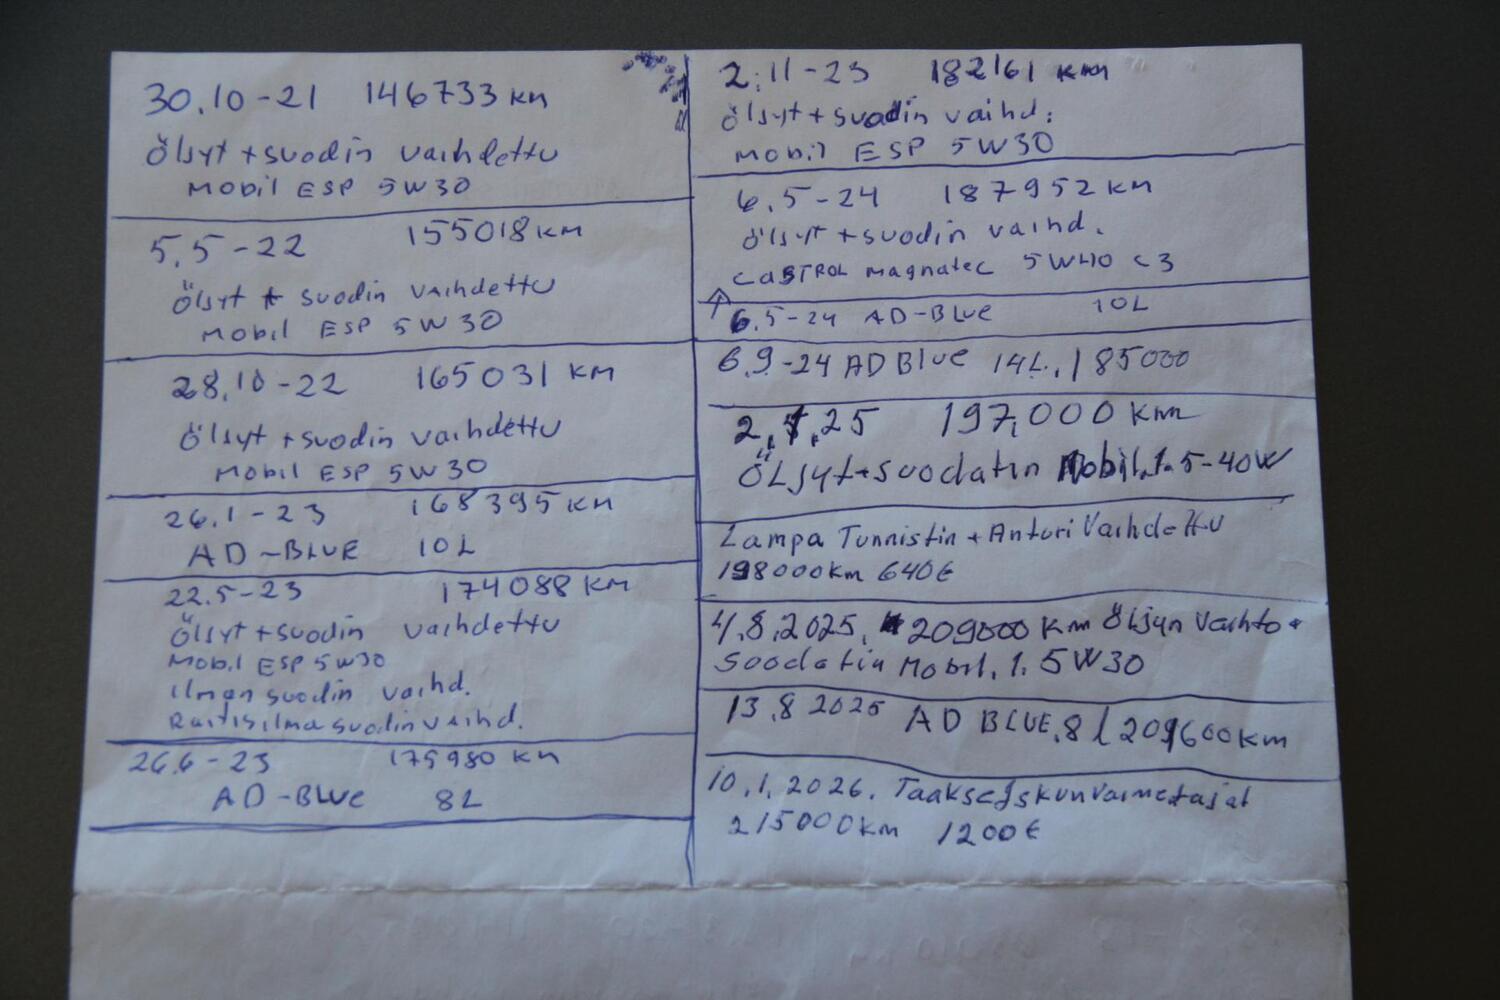 30.10-21 146733 km
Öljyt + suodin vaihdettu
Mobil ESP 5W30
5.5-22 155018 km
Öljyt + suodin vaihdettu
Mobil ESP 5W30
28.10-22 165031 km
Öljyt + suodin vaihdettu
Mobil ESP 5W30
26.1-23 168395 km
AD-BLUE 10L
22.5-23 174088 km
Öljyt + suodin vaihdettu
Mobil ESP 5W30
ilman suodin vaihd.
Raitisilma suodin vaihd.
26.6-23 175980 km
AD-BLUE 8L
2.11-23 182161 km
Öljyt + suodin vaihd.
Mobil ESP 5W30
6.5-24 187952 km
Öljyt + suodin vaihd.
CASTROL magnatec 5W40 C3
6.5-24 AD-BLUE 10L
6.9-24 AD Blue 14L. 185000
2.1.25 197.000 km
Öljyt + suodatin Mobil.1. 5-40W
Lämpä Tunnistin + Anturi Vaihdettu
198000km 640€
4.8.2025. 209000 km Öljyn vaihto +
Suodatin Mobil. 1. 5W30
13.8 2025 AD BLUE.8l 209600km
10.1.2026.
215000km 1200€